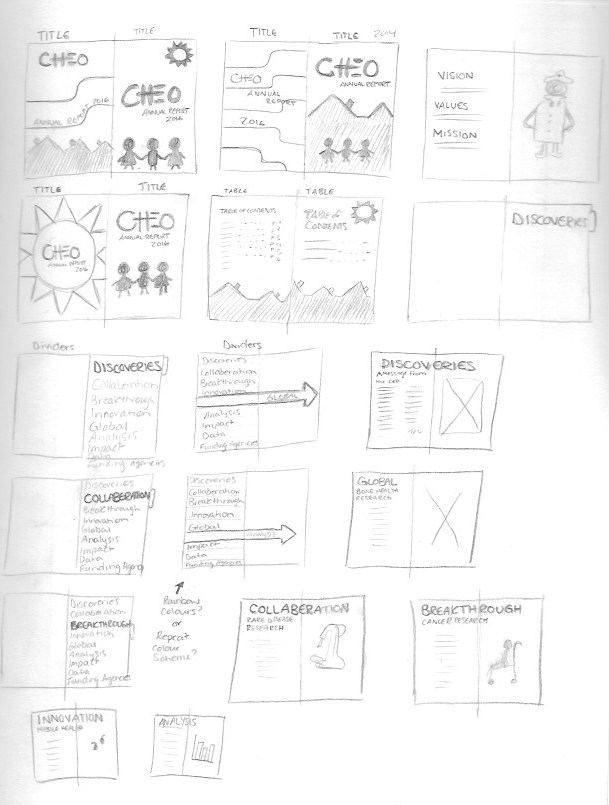 TITLE
TITLE
CHEO
ANNUAL REPORT 2016
CHEO
ANNUAL REPORT
2016
TITLE
TITLE
CHEO
ANNUAL
REPORT
2016
CHEO
ANNUAL REPORT
VISION
VALUES
MISSION
TITLE
TITLE
CHEO
ANNUAL REPORT
2016
CHEO
ANNUAL REPORT
2016
TABLE
TABLE
TABLE OF CONTENTS
TABLE OF
CONTENTS
DISCOVERIES
Dividers
DISCOVERIES
Collaboration
Breakthrough
Innovation
Global
Analysis
Impact
Data
Funding Agencies
Dividers
Discoveries
Collaboration
Breakthrough
Innovation
GLOBAL
Analysis
Impact
Data
Funding Agencies
DISCOVERIES
A Message From
our CEO
Discoveries
COLLABORATION
Breakthrough
Innovation
Global
Analysis
Impact
Data
Funding Agency
Discoveries
Collaboration
Breakthrough
Innovation
Global
Analysis
Impact
Data
Funding Agencies
GLOBAL
BONE HEALTH
RESEARCH
Discoveries
Collaboration
BREAKTHROUGH
Innovation
Global
Analysis
Impact
Data
Funding Agencies
Rainbow
Colours?
or
Repeat
Colour
Scheme?
COLLABERATION
RARE DISEASE
RESEARCH
BREAKTHROUGH
CANCER RESEARCH
INNOVATION
MOBILE HEALTH
ANALYSIS